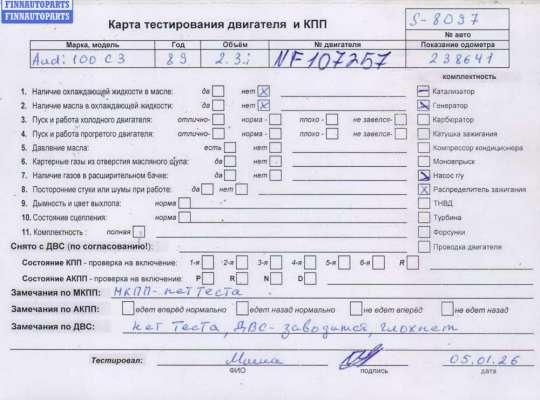 FINNAUTOPARTS
FINNAUTOPARTS
Карта тестирования двигателя и КПП
S-8097
№ авто
Марка, модель Год Объём № двигателя Показание одометра
Audi 100 C3 89 2.3i NF107257 238641
комплектность
1. Наличие охлаждающей жидкости в масле: да нет Катализатор
2. Наличие масла в охлаждающей жидкости: да нет Генератор
3. Пуск и работа холодного двигателя: отлично- норма - плохо - не завелся- Карбюратор
4. Пуск и работа прогретого двигателя: отлично- норма - плохо - не завелся- Катушка зажигания
5 Давление масла: есть нет Компрессор кондиционера
6. Картерные газы из отверстия масляного щупа: да нет Моновпрыск
7. Наличие газов в расширительном бачке: да нет Насос г/у
8. Посторонние стуки или шумы при работе: да нет Распределитель зажигания
9. Дымность и цвет выхлопа: норма ТНВД
10. Состояние сцепления: норма Турбина
11. Комплектность : полная Форсунки
Снято с ДВС (по согласованию!): Проводка двигателя
Состояние КПП - проверка на включение: 1-я 2-я 3-я 4-я 5-я 6-я R
Состояние АКПП - проверка на включение: P R N D
Замечания по МКПП: МКПП- нет теста
Замечания по АКПП: едет вперёд нормально едет назад нормально не едет вперёд не едет назад
Замечания по ДВС: нет теста, ДВС- заводится, глохнет
Тестировал: Миша 05.01.26
ФИО подпись дата